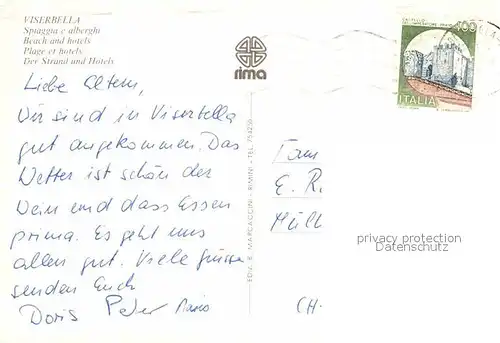 VISERBELLA
Spiaggia e alberghi
Beach and hotels
Plage et hotels
Der Strand und Hotels
rima
CASTELLO
400
ITALIA
Liebe Eltern,
Wir sind in Viserbella
gut angekommen. Das
Wetter ist schön der
Wein und dass Essen
prima. Es geht uns
allen gut. Viele grüsse
senden Euch
Doris Peter
EDIZ. E. MARCACCINI - RIMINI - TEL.
Fam
E. R.
Müll
CH-
privacy protection
Datenschutz